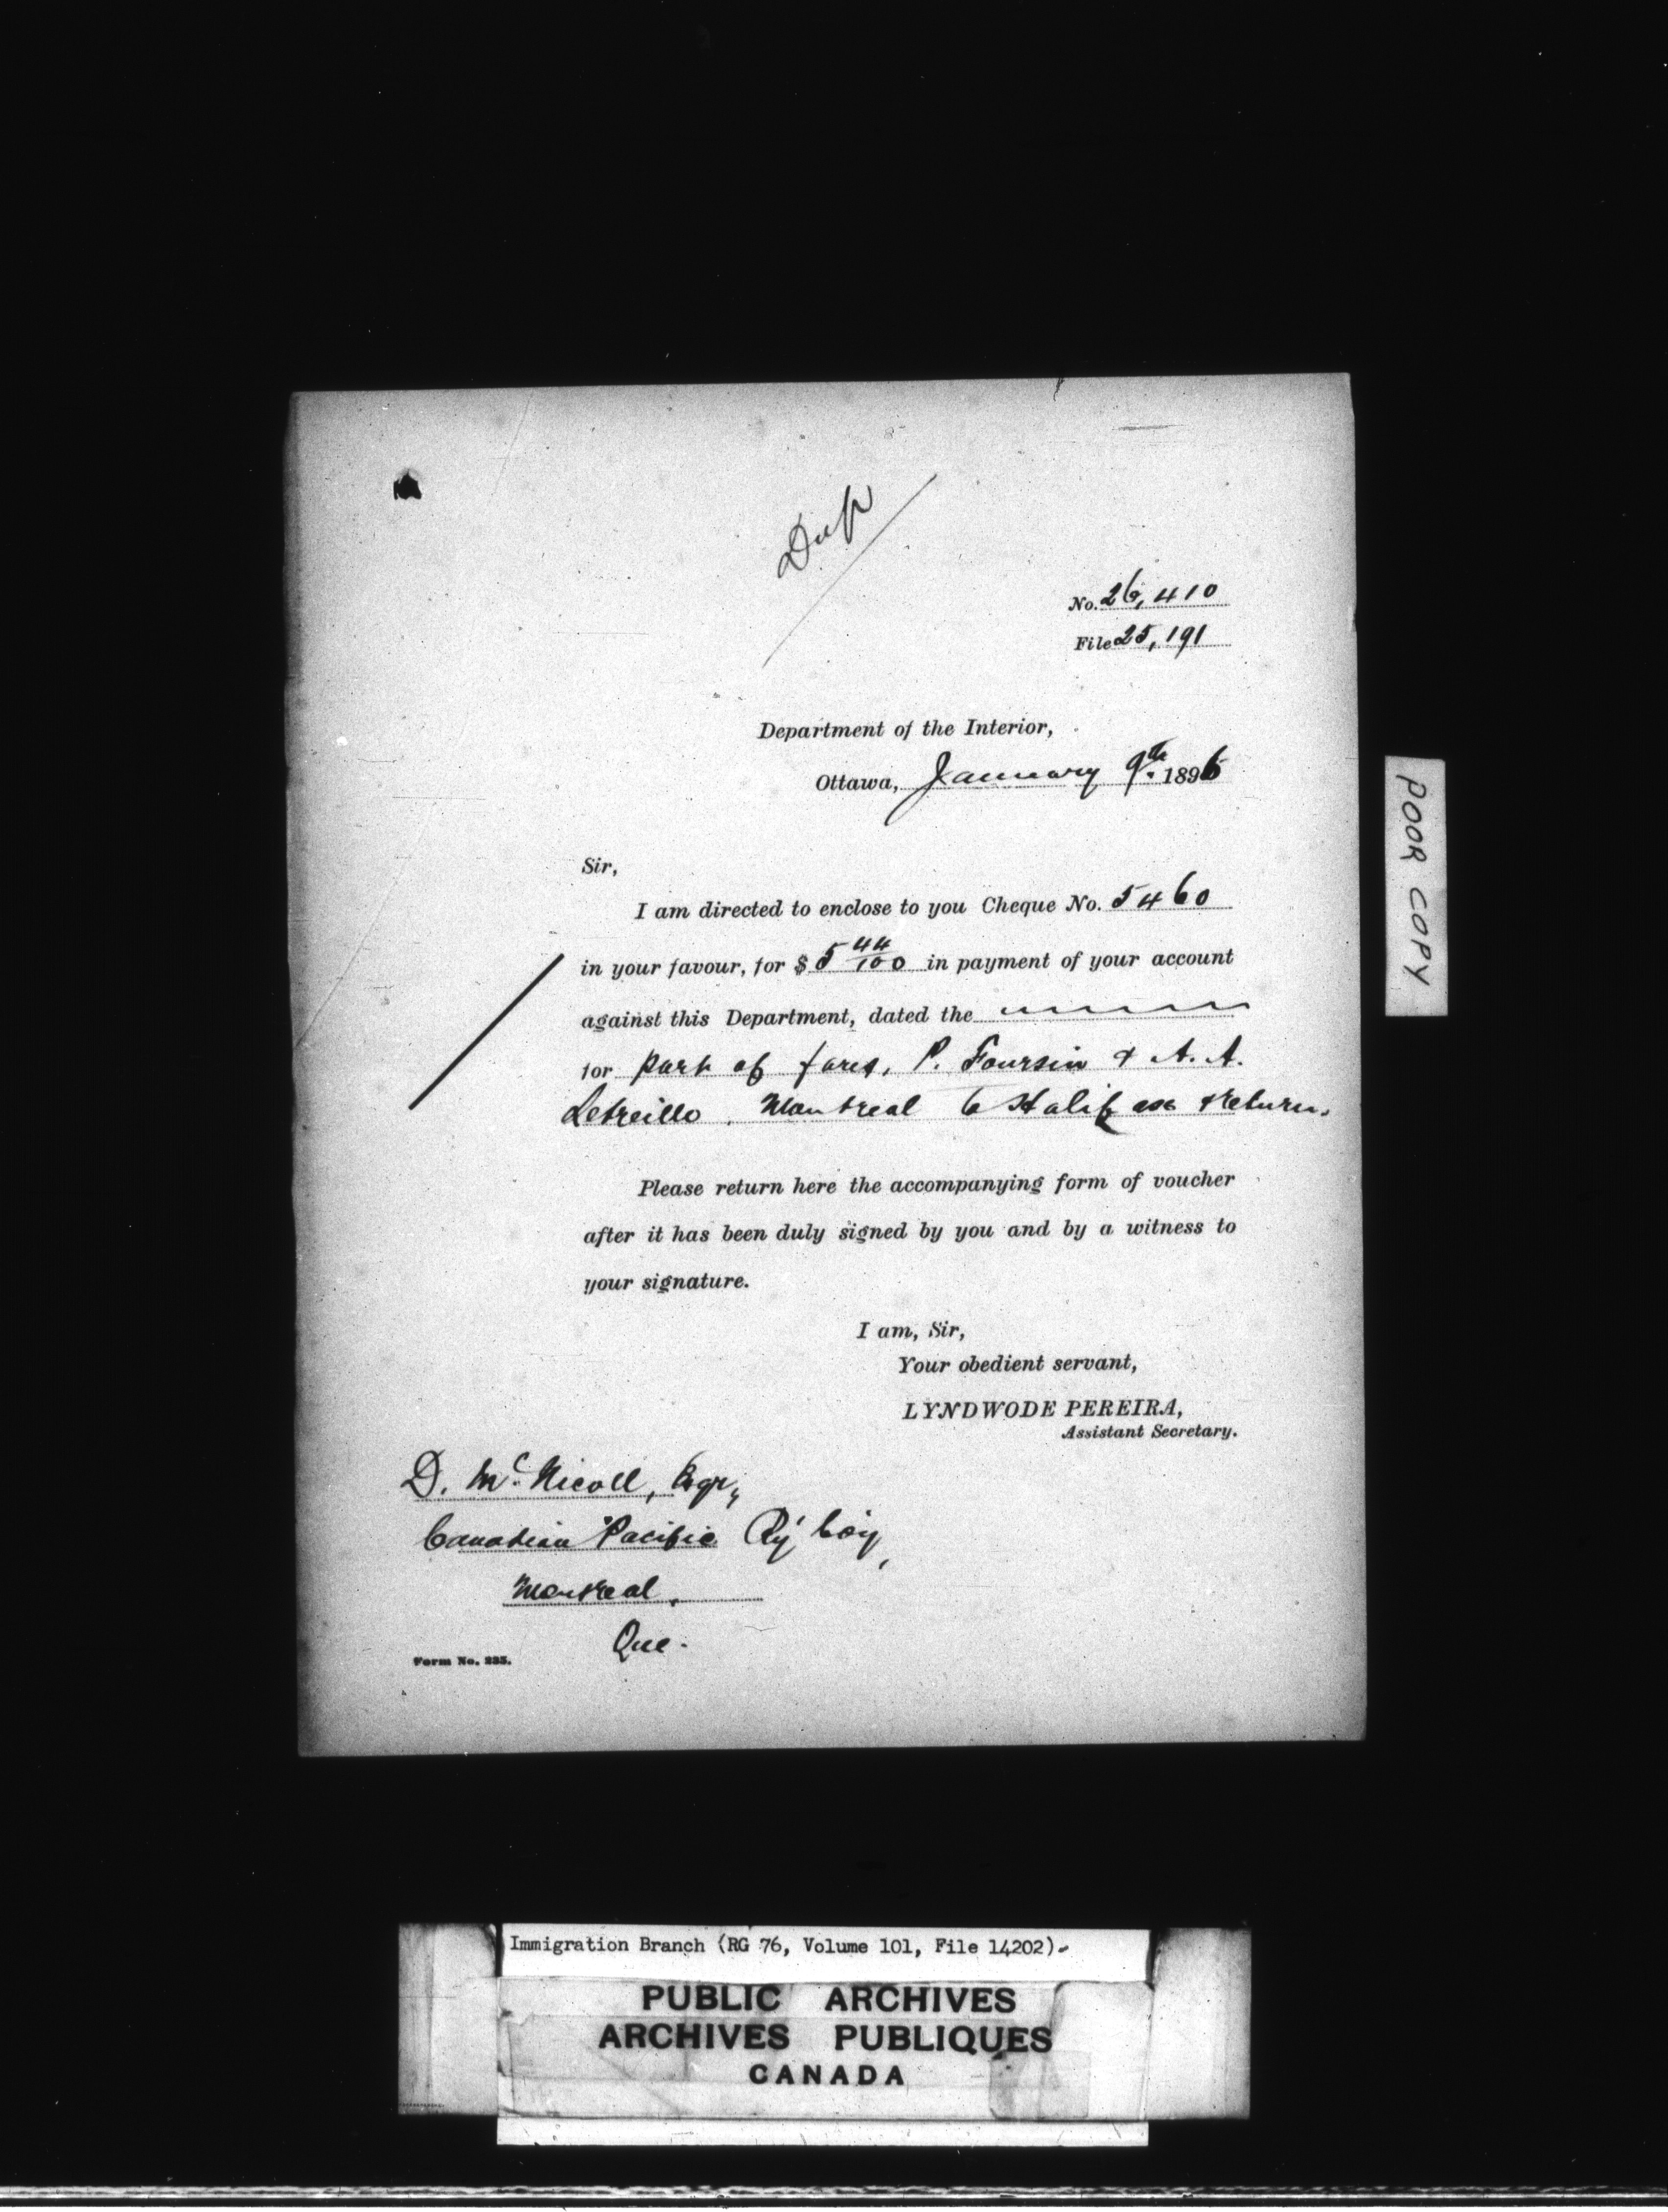 Dup
No. 26,410
File 25,191
Department of the Interior,
Ottawa, January 9th. 1896
Sir,
I am directed to enclose to you Cheque No. 5460
in your favour, for $ 5 44/100 in payment of your account
against this Department, dated the
for part of fares, P. Foursin & A. A.
Letreillo. Montreal to Halifax & return.
Please return here the accompanying form of voucher
after it has been duly signed by you and by a witness to
your signature.
I am, Sir,
Your obedient servant,
LYNDWODE PEREIRA,
Assistant Secretary.
D. McNicoll, Esqr,
Canadian Pacific Ry Coy,
Montreal,
Que.
Form No. 235.
POOR COPY
Immigration Branch (RG 76, Volume 101, File 14202)
PUBLIC ARCHIVES
ARCHIVES PUBLIQUES
CANADA